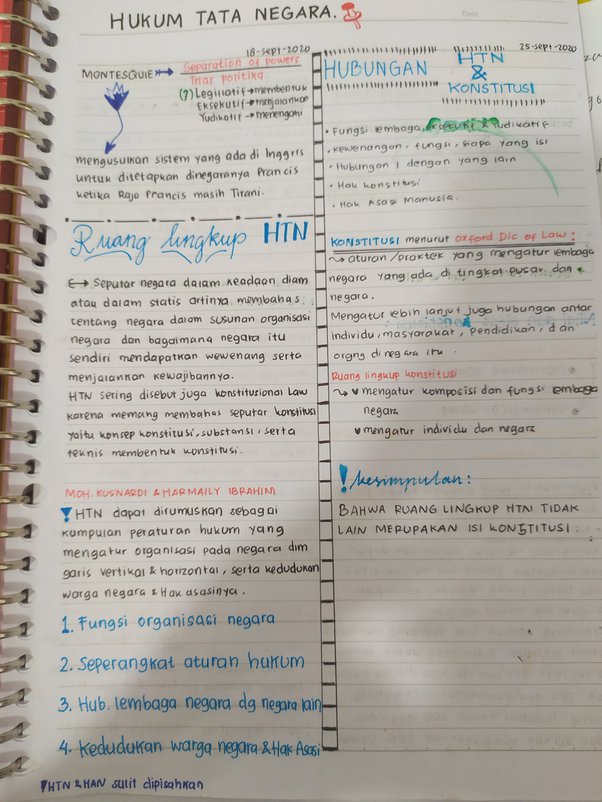 HUKUM TATA NEGARA.
18-sept-2020
MONTESQUIE → Separation of powers
Trias politika
(?) Legislatif → membentuk
Eksekutif → menjalankan
Yudikatif → menengahi
mengusulkan sistem yang ada di Inggris
untuk ditetapkan dinegaranya Prancis
ketika Raja Prancis masih Tirani.
Ruang lingkup HTN
Seputar negara dalam keadaan diam
atau dalam statis artinya membahas
tentang negara dalam susunan organisasi
negara dan bagaimana negara itu
sendiri mendapatkan wewenang serta
menjalankan kewajibannya.
HTN sering disebut juga konstitusional Law
karena memang membahas seputar konstitusi
yaitu konsep konstitusi, substansi, serta
teknis membentuk konstitusi.
MOH. KUSNARDI & HARMAILY IBRAHIM
! HTN dapat dirumuskan sebagai
kumpulan peraturan hukum yang
mengatur organisasi pada negara dlm
garis vertikal & horizontal, serta kedudukan
warga negara & Hak asasinya.
1. Fungsi organisasi negara
2. Seperangkat aturan hukum
3. Hub. lembaga negara dg negara lain
4. Kedudukan warga negara & Hak Asasi
! HTN & HAN sulit dipisahkan
25-sept-2020
HUBUNGAN HTN
&
KONSTITUSI
• Fungsi lembaga, eksekutif & Yudikatif
• kewenangan, fungsi, siapa yang isi
• Hubungan 1 dengan yang lain
• Hak konstitusi
• Hak Asasi Manusia.
KONSTITUSI menurut Oxford Dic of Law :
→ aturan/praktek yang mengatur lembaga
negara yang ada di tingkat pusat dan
negara.
Mengatur lebih lanjut juga hubungan antar
individu, masyarakat, pendidikan, dan
orgng di negara itu.
Ruang lingkup konstitusi
→ mengatur komposisi dan fungsi lembaga
negara
mengatur individu dan negara
! kesimpulan:
BAHWA RUANG LINGKUP HTN TIDAK
LAIN MERUPAKAN ISI KONSTITUSI.